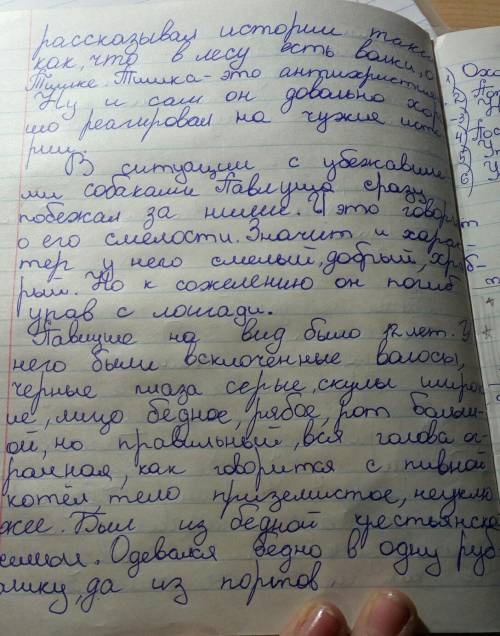 рассказывал истории такие
как, что в лесу есть волки, о
Тишке. Тишка - это антихристиян.
Ну и сам он довольно хоро
шо реагировал на чужия исто
рии.
В ситуации с убежавши
ми собаками Павлуша сразу
побежал за ними. И это говорит
о его смелости. Значит и харак
тер у него смелый, добрый, храб
рый. Но к сожелению он погиб
упав с лошади.
Павлуше на вид было 12 лет. У
него были всклоченные волосы,
черные глаза серые, скулы широк
ие, лицо бедное, рябое, рот болш-
ой, но правильный, вся голова ог
ромная, как говорится с пивной
котёл, тело приземистое, неуклю
жее. Был из бедной крестьянской
семьи. Одевался бедно в одну руб
ашку, да из портов.
1)
2)
3)
4)
5)
6)